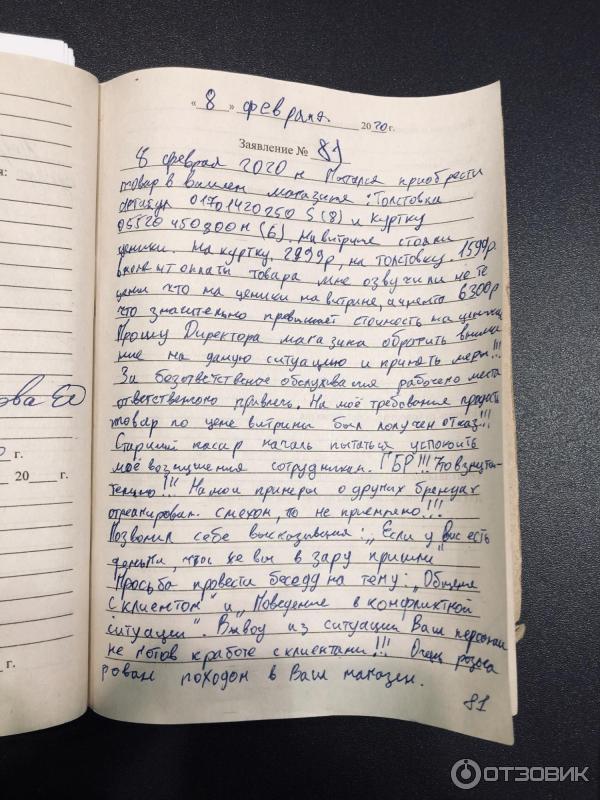 я:
« 8 » февраля. 20 20 г.
Заявление № 81
8 февраля 2020 г Пытался приобрести
товар в вашем магазине: Толстовка
артикул 01701420250 S (8) и куртку
05520450800 M (6). На витрине стояли
ценники. На куртку. 2899р, на толстовку. 1599р
в момент оплаты товара мне озвучили не те
цены что на ценники на витрине, а именно 6300р
что значительно превышает стоимость на ценнике
Прошу Директора магазина обратить внима
ние на данную ситуацию и принять меры!!!
За безответственое обслуживания рабочего места
ответственого привлечь. На моё требования продать
товар по цене витрины был получен отказ!!!
Старший касир начал пытаться успокоить
моё возмущения сотрудникам. ГБР!!! Возмути-
тельно!!! На мои примеры о других брендах
отреагировал смехом, то не приемлемо!!!
Позволил себе высказывания: „Если у Вас есть
деньги, что же вы в зару пришли"
Просьба провести беседу на тему: „Общение
с клиентом" и „Поведение в конфликтной
ситуации". Вывод из ситуации Ваш персонал
не готов к работе с клиентами!!! Очень разоча
рован походом в Ваш магазин.
81
ова ЕО
г.
20 г.
г.
ОТЗОВИК